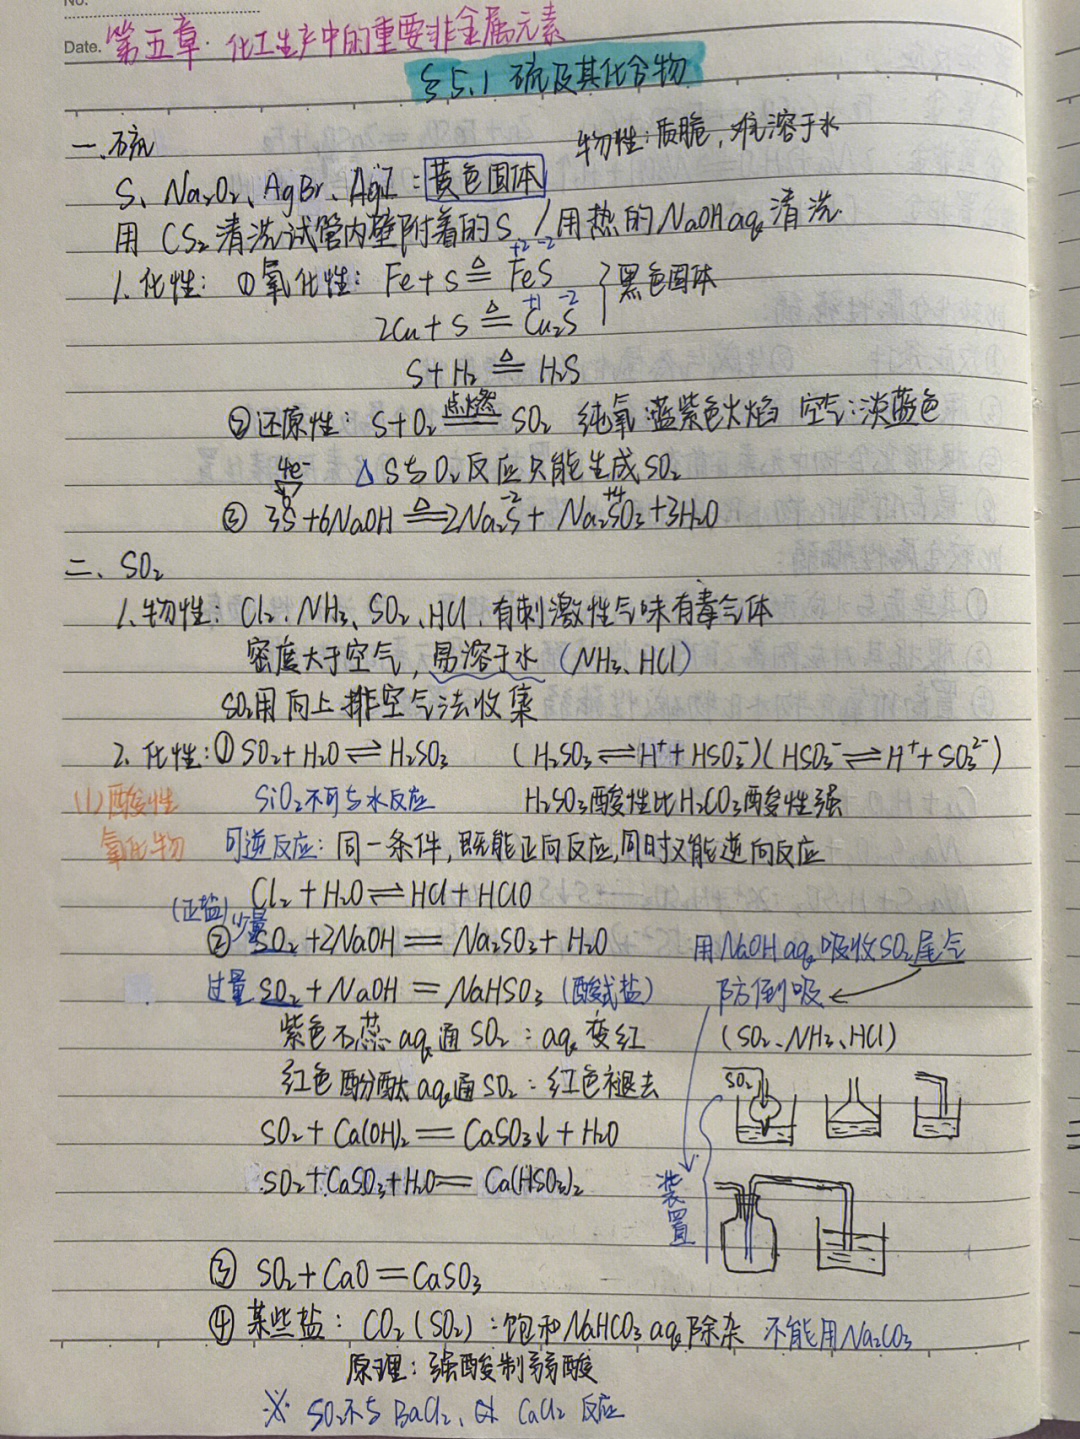 No.
Date. 第五章. 化工生产中的重要非金属元素
§5.1 硫及其化合物
一.硫 物性:质脆,难溶于水
S、Na₂O₂、AgBr、AgI:黄色固体
用 CS₂ 清洗试管内壁附着的S / 用热的NaOH aq 清洗
1. 化性: ①氧化性: Fe+S ≜ FeS (+2 -2) } 黑色固体
2Cu+S ≜ Cu₂S (+1 -2)
S+H₂ ≜ H₂S
②还原性: S+O₂ =点燃= SO₂ 纯氧:蓝紫色火焰 空气:淡蓝色
4e⁻ △ S与O₂反应只能生成SO₂
③ 3S+6NaOH ≜ 2Na₂S+Na₂SO₃+3H₂O (-2 +4)
二、SO₂
1.物性: Cl₂、NH₃、SO₂、HCl.有刺激性气味有毒气体
密度大于空气,易溶于水 (NH₃、HCl)
SO₂用向上排空气法收集
2. 化性:①SO₂+H₂O⇌H₂SO₃ (H₂SO₃⇌H⁺+HSO₃⁻)(HSO₃⁻⇌H⁺+SO₃²⁻)
(1)酸性 SiO₂不可与水反应 H₂SO₃酸性比H₂CO₃酸性强
氧化物 可逆反应:同一条件,既能正向反应,同时又能逆向反应
Cl₂+H₂O⇌HCl+HClO
(正盐)
② 少量SO₂+2NaOH=Na₂SO₃+H₂O 用NaOH aq 吸收SO₂尾气
过量SO₂+NaOH=NaHSO₃ (酸式盐) 防倒吸
紫色石蕊aq通SO₂:aq变红 (SO₂、NH₃、HCl)
红色酚酞aq通SO₂:红色褪去 SO₂
SO₂+Ca(OH)₂=CaSO₃↓+H₂O
SO₂+CaSO₃+H₂O=Ca(HSO₃)₂ 装置
③ SO₂+CaO=CaSO₃
④ 某些盐: CO₂(SO₂):饱和NaHCO₃ aq除杂 不能用Na₂CO₃
原理:强酸制弱酸
※ SO₂不与BaCl₂、 CaCl₂ 反应